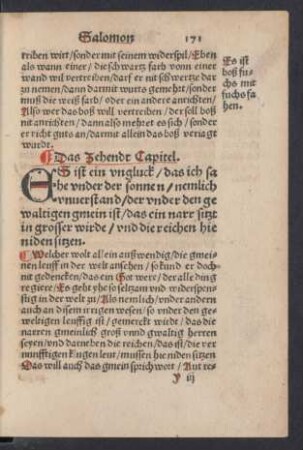 Salomon 171
triben wirt / sonder mit seinem widerspil / Eben
als wann einer / die schwartz farb vonn einer
wand wil vertreiben / darf er nit schwertze dar
zu nemen / dann darmit wurts gemehrt / sonder
muß die weiß farb / oder ein andere anrichten /
Also wer das böß will vertreiben / der soll böß
nit anrichten / dann also mehret es sich / sonder
er richt guts an / darmit allein das böß veriagt
wurdt.
Es ist
böß fu-
chs mit
fuchs fa
hen.
Das Zehendt Capitel.
ES ist ein vngluck / das ich sa
he vnder der sonnen / nemlich
vnuerstand / der vnder den ge
waltigen gmein ist / das ein narr sitzt
in grosser wirde / vnd die reichen hie
niden sitzen.
Welcher wolt allein außwendig / die gmei-
nen leuff in der welt ansehen / so kund er doch
nit gedencken / das ein Got wer / der alle ding
regiere / Es geht yhe so seltzam vnd widerspens-
tig in der welt zu / Als nemlich / vnder andern
auch an disem irrigen wesen / so vnder den ge-
weltigen leuffig ist / gemerckt wirdt / das die
narren gmeinlich groß vnnd gwaltig herren
seyen / vnd darneben die reichen / das ist / die ver
nunfftigen klugen leut / mussen hie niden sitzen
Das will auch das gmein sprichwort / Ant re-
y iij